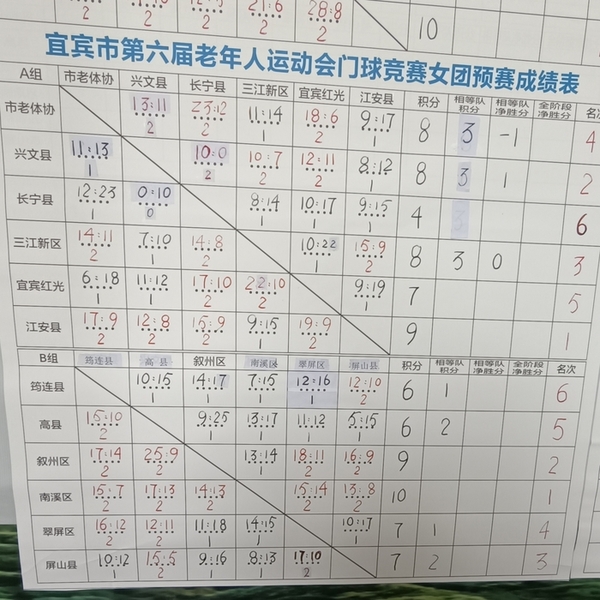 28:8
2 2 2 2 10
宜宾市第六届老年人运动会门球竞赛女团预赛成绩表
A组 市老体协 兴文县 长宁县 三江新区 宜宾红光 江安县 积分 相等队积分 相等队净胜分 全阶段净胜分 名次
市老体协 13:11 23:12 11:14 18:6 9:17 8 3 -1 4
2 2 1 2 1
兴文县 11:13 10:0 10:7 12:11 8:12 8 3 1 2
1 2 2 2 1
长宁县 12:23 0:10 8:14 10:17 9:15 4 3 6
1 0 1 1 1
三江新区 14:11 7:10 14:8 10:22 15:9 8 3 0 3
2 1 2 1 2
宜宾红光 6:18 11:12 17:10 22:10 9:19 7 5
1 1 2 2 1
江安县 17:9 12:8 15:9 9:15 19:9 9 1
2 2 2 1 2
B组 筠连县 高县 叙州区 南溪区 翠屏区 屏山县 积分 相等队积分 相等队净胜分 全阶段净胜分 名次
筠连县 10:15 14:17 7:15 12:16 12:10 6 1 6
1 1 1 1 2
高县 15:10 9:25 13:17 11:12 5:15 6 2 5
2 1 1 1 1
叙州区 17:14 25:9 13:14 18:11 16:9 9 2
2 2 1 2 2
南溪区 15:7 17:13 14:13 15:14 13:8 10 1
2 2 2 2 2
翠屏区 16:12 12:11 11:18 14:15 10:17 7 1 4
2 2 1 1 1
屏山县 10:12 15:5 9:16 8:13 17:10 7 2 3
1 2 1 1 2